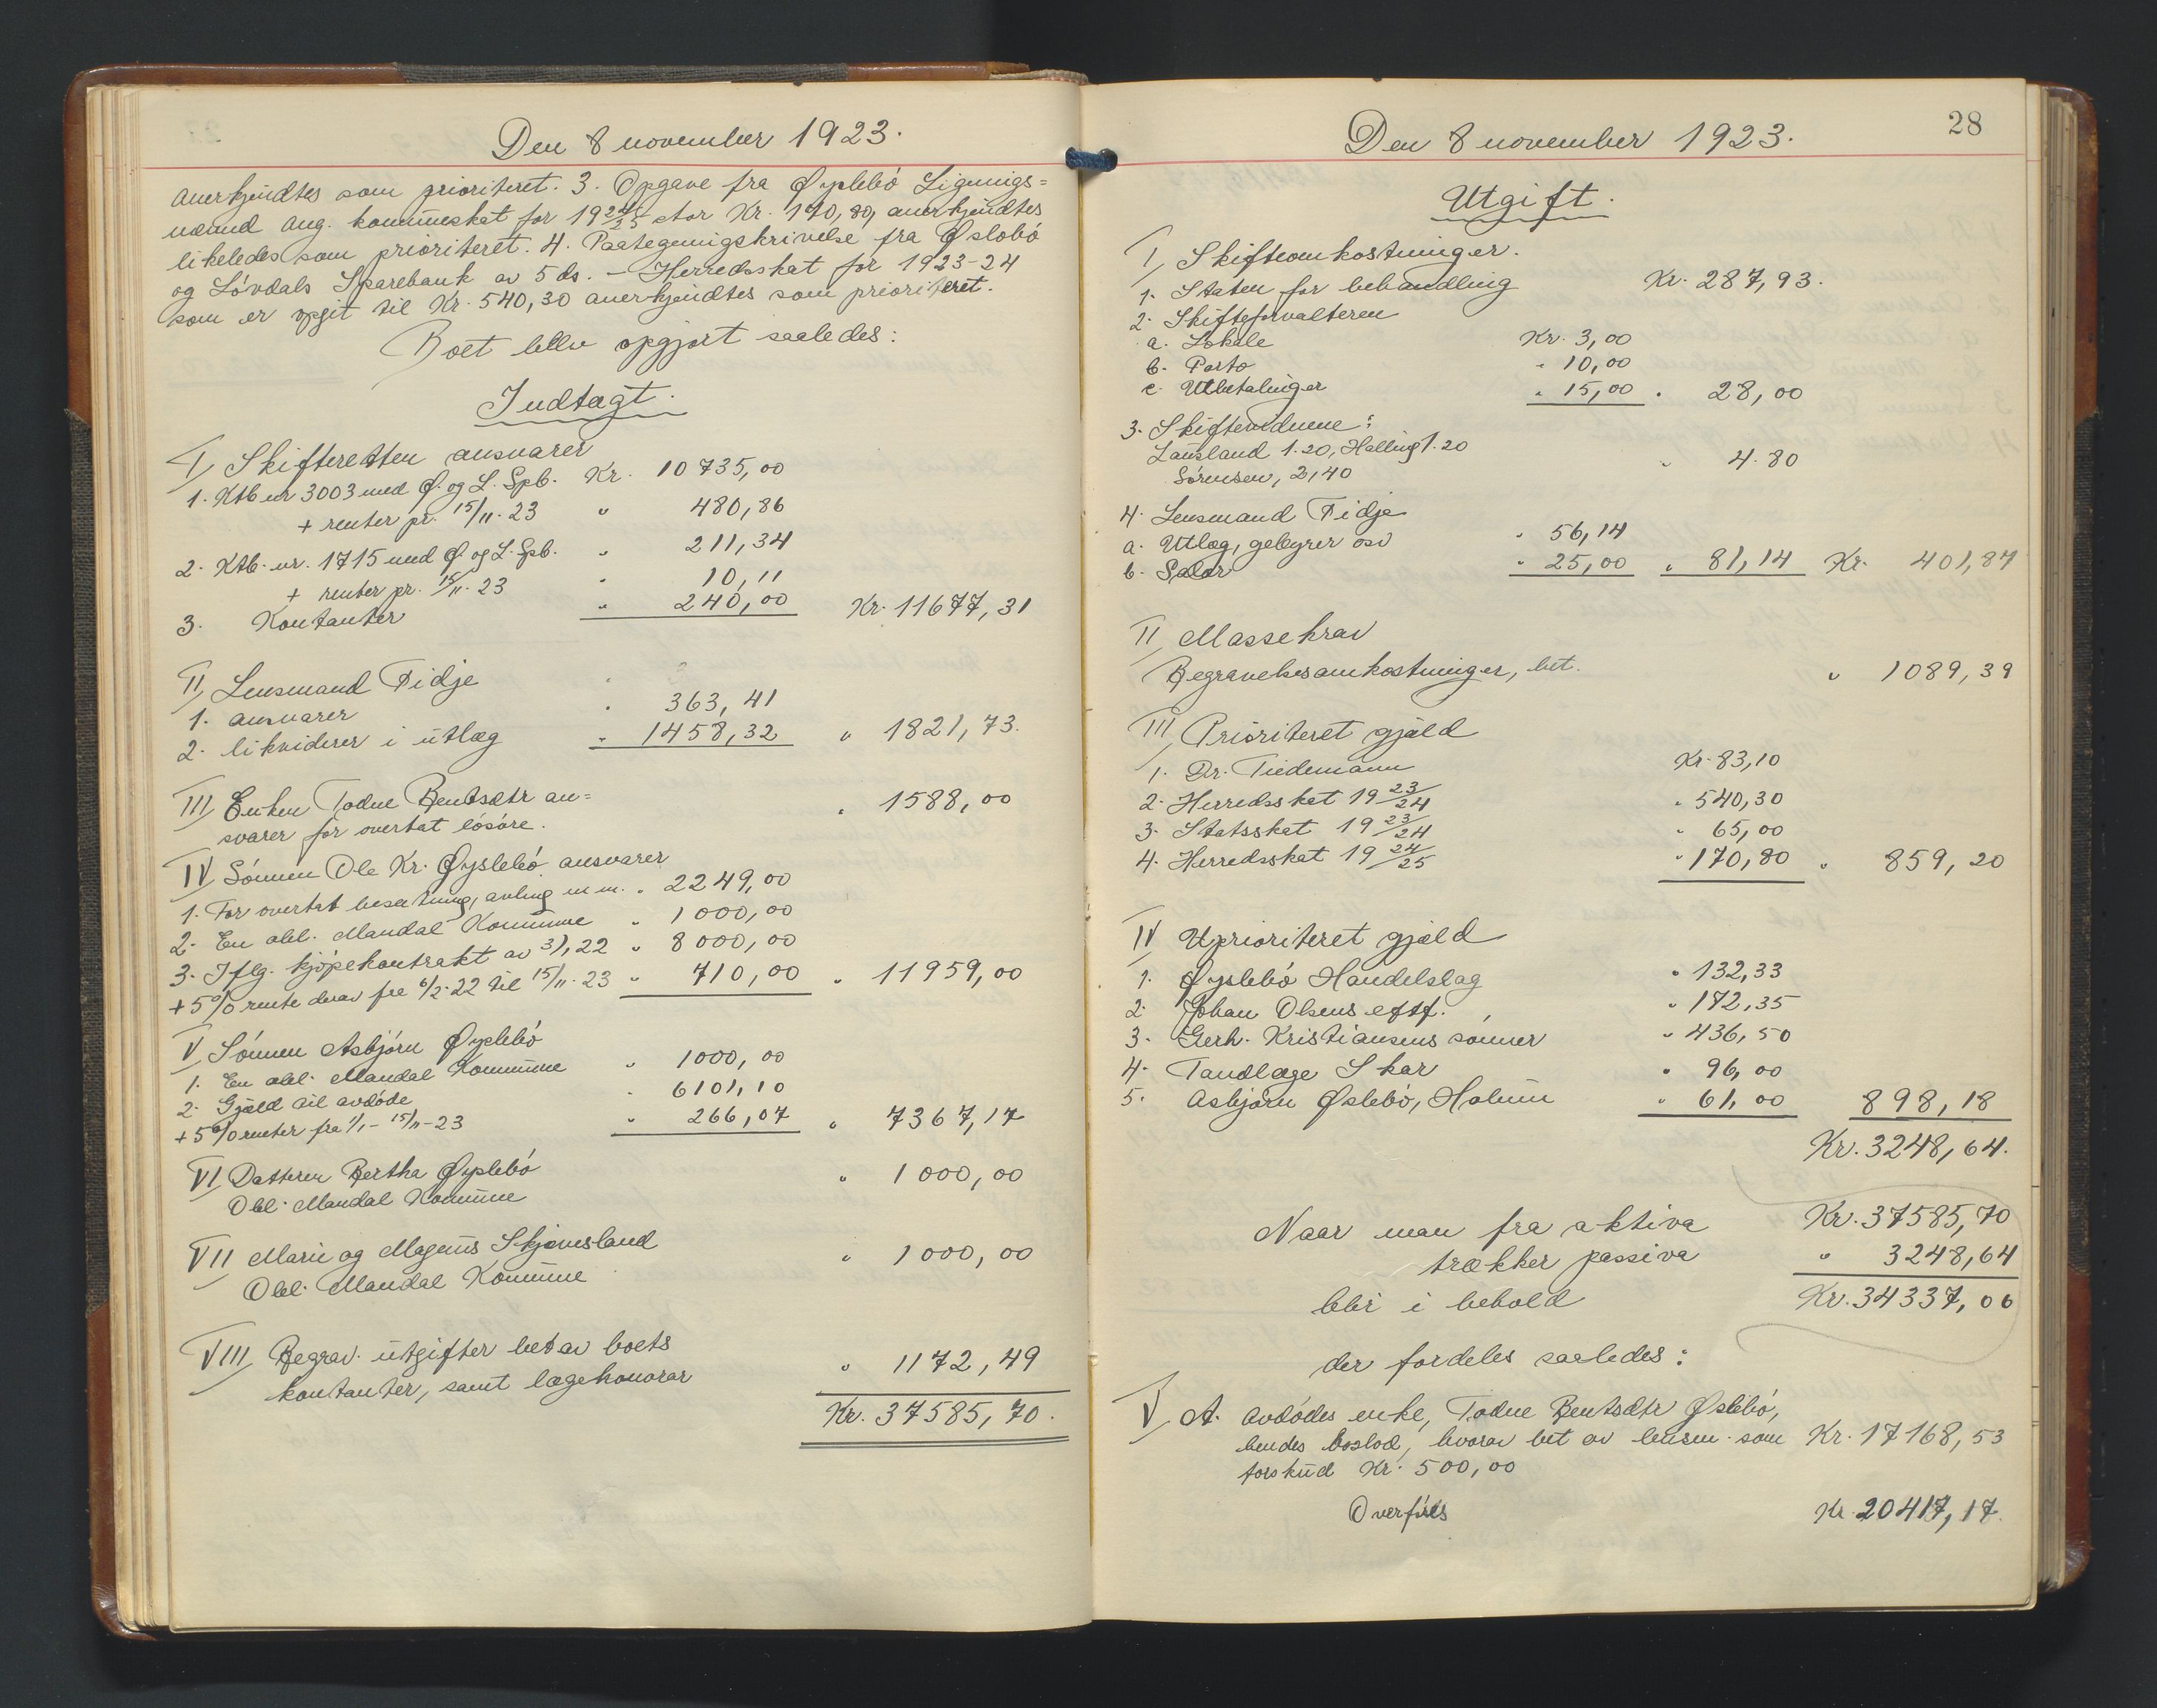 Den 8 november 1923.
anerkjendtes som prioriteret. 3. Opgave fra Øyslebö Lignings=
nævnd ang. kommuneskat for 1924/25 stor Kr. 170,80, anerkjendtes
likeledes som prioriteret. 4. Paategningskrivelse fra Øslebö
og Lövdals Sparebank av 5 ds. - Herredsskat for 1923-24
som er opgit til Kr. 540,30 anerkjendtes som prioriteret.
Boet blev opgjort saaledes:
Indtægt.
I, Skifteretten ansvarer
1. Ktb nr 3003 med Ø. og L. Spb. Kr. 10735,00
+ renter pr. 15/11.23 " 480,86
2. Ktb. nr. 1715 med Ø. og L. Spb. " 211,34
+ renter pr. 15/11.23 " 10,11
3. Kontanter " 240,00 Kr. 11677,31
II, Lensmand Tidje
1. ansvarer " 363,41
2. likviderer i utlæg " 1458,32 " 1821,73.
III, Enken Todne Bentsdtr an=
svarer for overtat lösöre. " 1588,00
IV, Sönnen Ole Kr. Øyslebö ansvarer
1. For overtat besætning, avling m m. " 2249,00
2. En obl. Mandal Kommune " 1000,00
3. Iflg. kjöpekontrakt av 3/1 22 " 8000,00
+ 5% rente derav fra 6/2-22 til 15/11.23 " 710,00 " 11959,00
V, Sönnen Asbjörn Øyslebö
1. En obl. Mandal Kommune " 1000,00
2. Gjæld til avdöde " 6101,10
+ 5% renter fra 1/1 - 15/11-23 " 266,07 " 7367,17
VI, Datteren Bertha Øyslebö
Obl. Mandal Kommune " 1000,00
VII, Marie og Magnus Skjævesland
Obl. Mandal Kommune " 1000,00
VIII, Begrav. utgifter bet av boets
kontanter, samt lægehonorar " 1172,49
Kr. 37585,70.
28
Den 8 november 1923.
Utgift.
I, Skifteomkostninger.
1. Staten for behandling Kr. 287,93.
2. Skifteforvalteren
a. Lokale Kr. 3,00
b. Porto " 10,00
c. Utbetalinger " 15,00 " 28,00
3. Skiftevidnene:
Launsland 1.20, Halling 1.20
Sörensen, 2,40 " 4.80
4. Lensmand Tidje
a. Utlæg, gebyrer osv " 56,14
b. Salær " 25,00 " 81,14 Kr. 401,87
II, Massekrav
Begravelsesomkostninger, bet. " 1089,39
III, Prioriteret gjæld
1. Dr. Tiedemann Kr. 83,10
2. Herredsskat 1923/24 " 540,30
3. Statsskat 1923/24 " 65,00
4. Herredsskat 1924/25 " 170,80 " 859,20
IV, Uprioriteret gjæld
1. Øyslebö Handelslag " 132,33
2. Johan Olsens eftf. " 172,35
3. Gerh. Kristiansens sönner " 436,50
4. Tandlæge Skar " 96,00
5. Asbjörn Øslebö, Holum " 61,00 898,18
Kr. 3248,64.
Naar man fra aktiva Kr. 37585,70
trækker passiva " 3248,64
blir i behold Kr. 34337,06
der fordeles saaledes:
V, A. Avdödes enke, Todne Bentsdtr Øslebö,
hendes boslod, hvorav bet av lensm. som Kr. 17168,53
forskud Kr. 500,00
Overföres Kr. 20417,17.